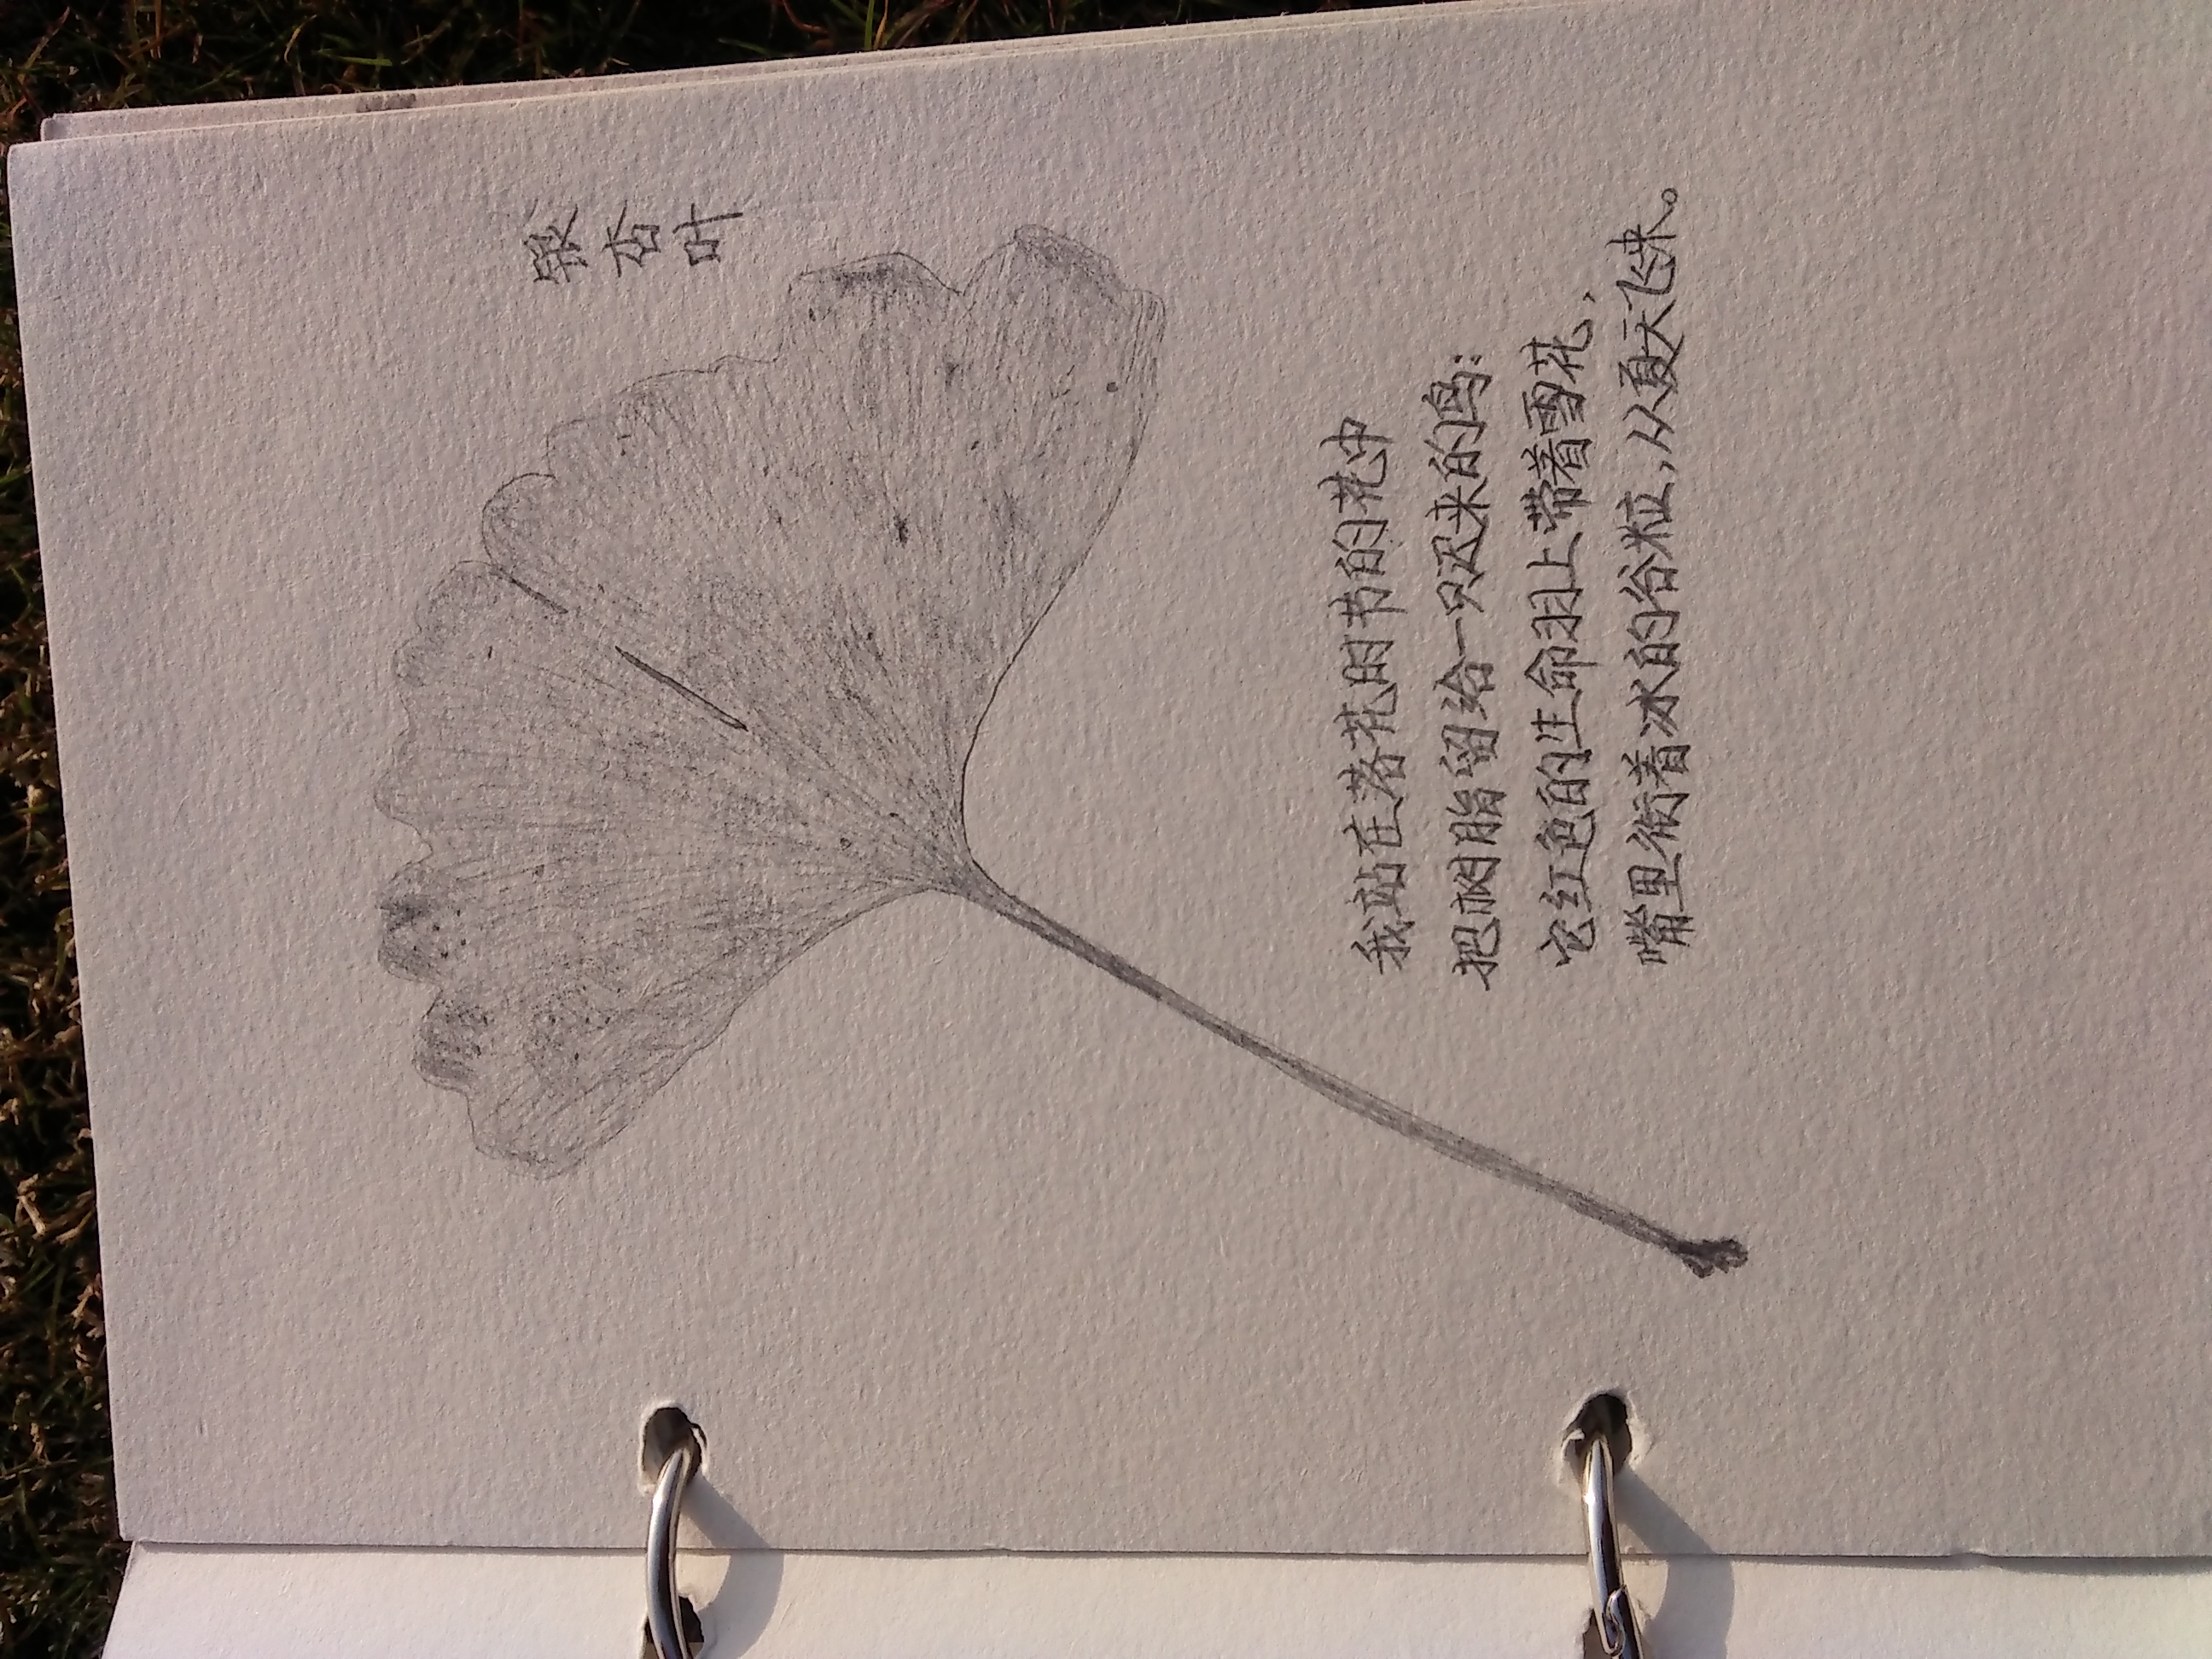 银杏叶
我站在落花时节的花中
把树脂留给一只迟来的鸟：
它红色的生命羽上带着雪花，
嘴里衔着冰的谷粒，从夏天飞来。